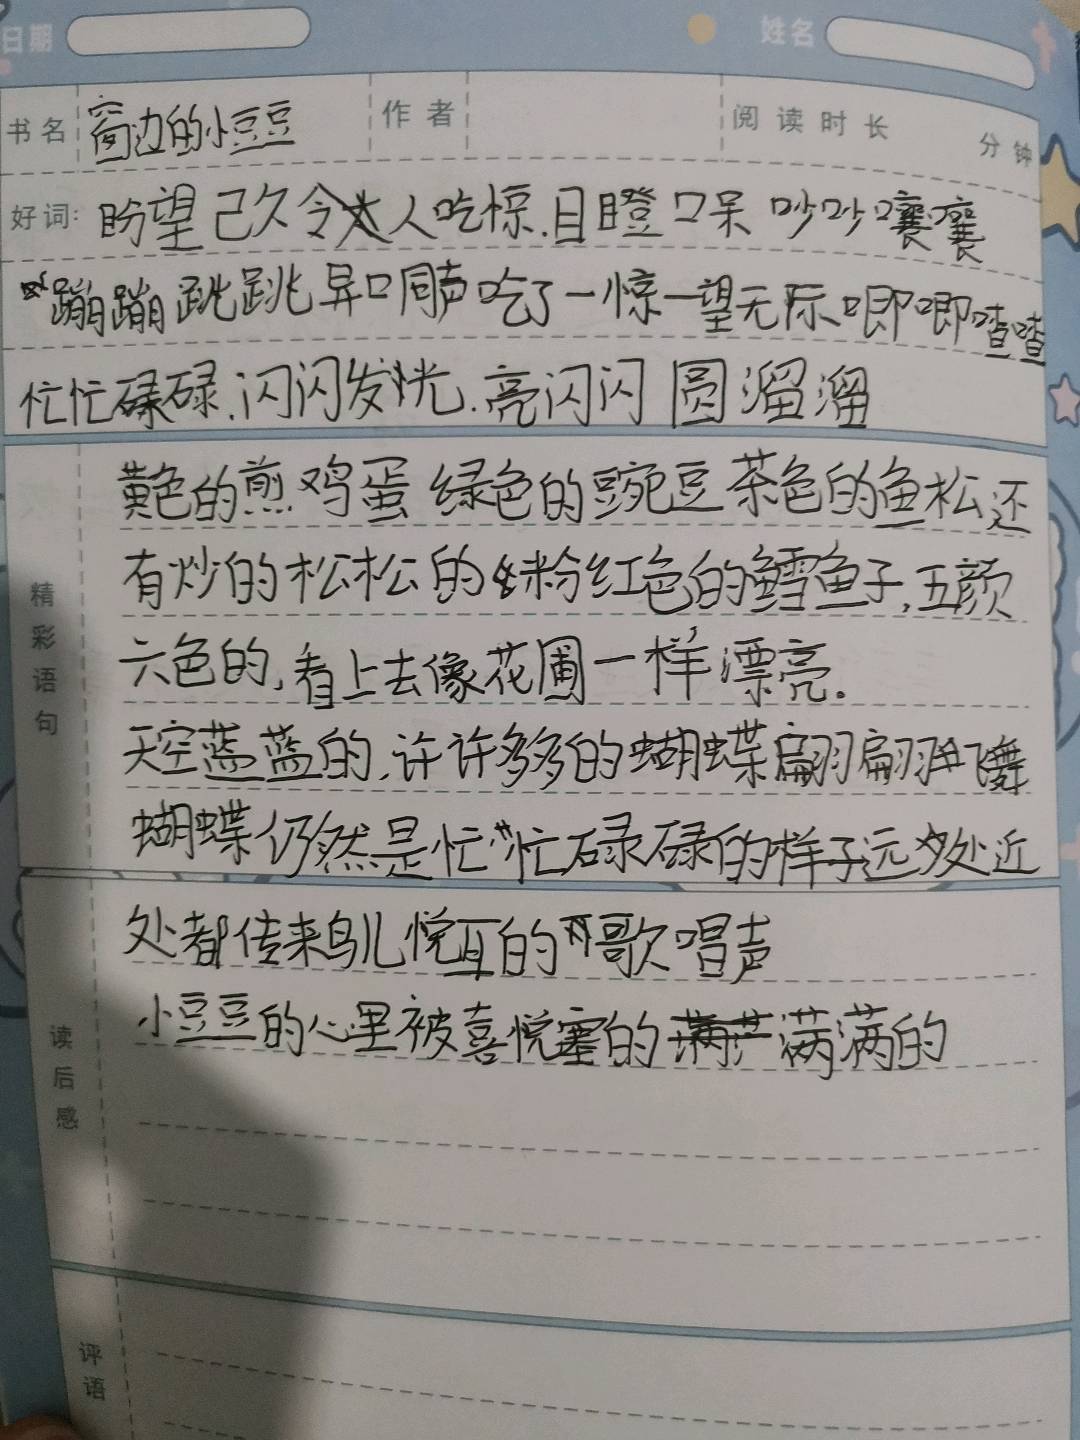 日期 姓名
书名 窗边的小豆豆 作者 阅读时长 分钟
好词: 盼望 己久 令人吃惊.目瞪口呆 吵吵嚷嚷
蹦蹦跳跳 异口同声 吃了一惊 一望无际 唧唧喳喳
忙忙碌碌.闪闪发光.亮闪闪 圆溜溜
精彩语句
黄色的煎鸡蛋 绿色的豌豆 茶色的鱼松 还
有炒的松松的粉红色的鳕鱼子,五颜
六色的,看上去像花圃一样漂亮.
天空蓝蓝的,许许多多的蝴蝶翩翩飞舞
蝴蝶仍然是忙忙碌碌的样子远处近
读后感
处都传来鸟儿悦耳的歌唱声
小豆豆的心里被喜悦塞的满满的
评语